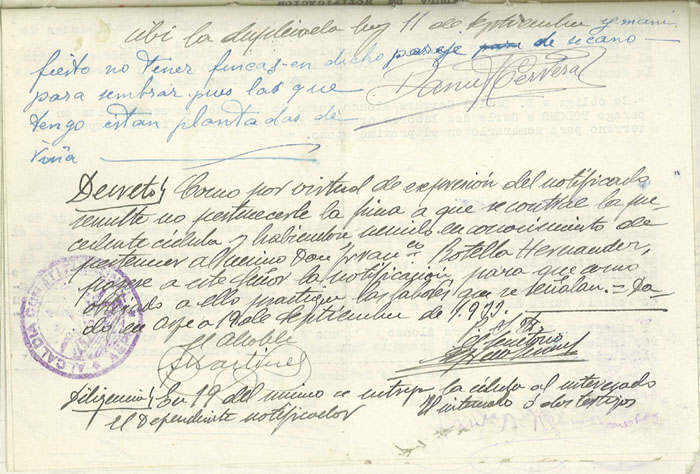 Recibí la duplicada hoy 11 de septiembre y mani-
fiesto no tener fincas en dicho paraje para de secano
para sembrar pues las que
tengo estan plantadas de
viña
Daniel Cervera
Decreto/ Como por virtud de expresión del notificado
resulte no pertenecerle la finca a que se contrae la pre-
cedente cédula y habiendo venido en conocimiento de
pertenecer al vecino Don Franco Botella Hernandez,
pásese a este Señor la notificación, para que como
obligado a ello practique las labores que se señalan.= Da-
do en Aspe a 19 de Septiembre de 1.933.
El Alcalde
Martinez
P. S. M.
El Secretario
ALCALDIA CONSTITUCIONAL
Diligencia/ En 19 del mismo se entrega la cédula al interesado
El Dependiente notificador
El interesado ó dos testigos